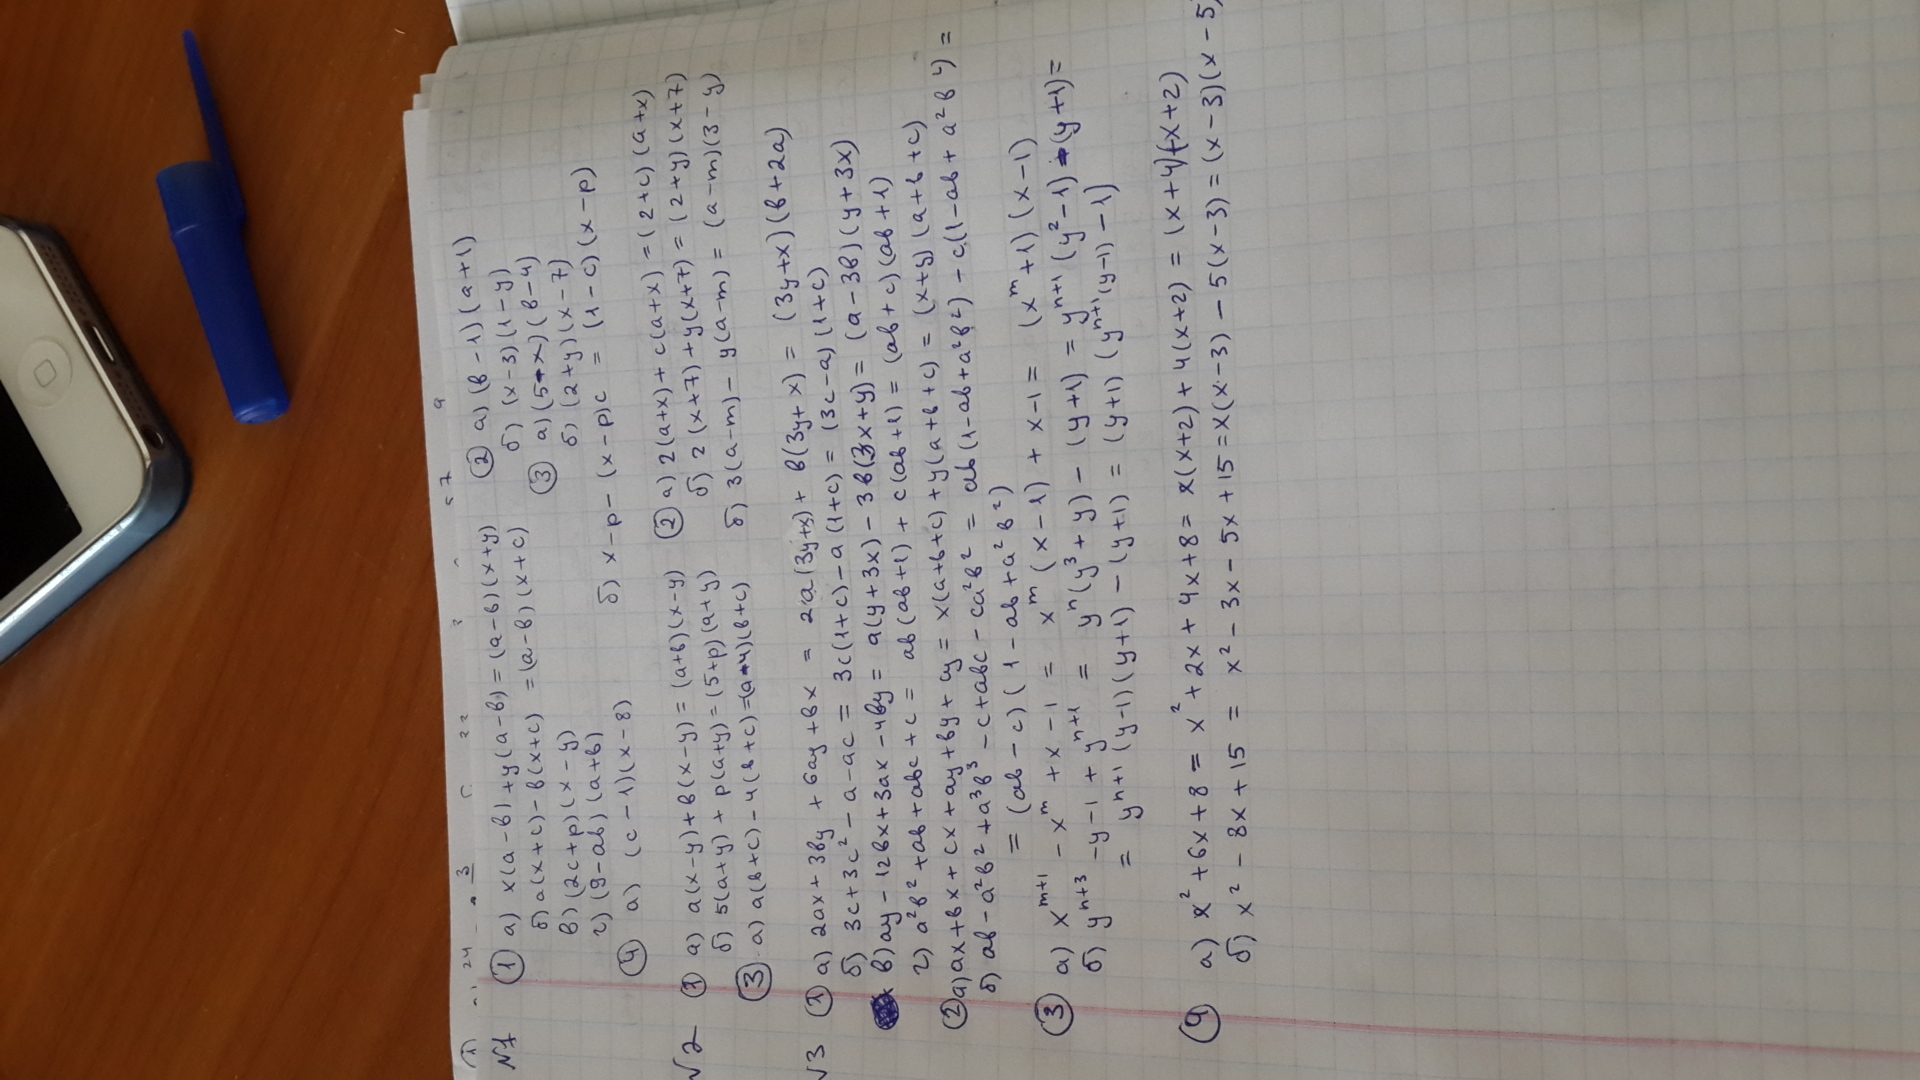 №1 ① а) x(a-в)+y(a-в)=(a-в)(x+y)
б) a(x+c)-в(x+c) =(a-в)(x+c)
в) (2c+p)(x-y)
г) (9-aв)(a+в)
② а) (в-1)(a+1)
б) (x-3)(1-y)
③ а) (5-x)(в-4)
б) (2+y)(x-7)
④ а) (c-1)(x-8)
б) x-p-(x-p)c = (1-c)(x-p)
√2 ① а) a(x-y)+в(x-y)=(a+в)(x-y)
б) 5(a+y)+p(a+y)=(5+p)(a+y)
② а) 2(a+x)+c(a+x)=(2+c)(a+x)
б) 2(x+7)+y(x+7)=(2+y)(x+7)
③ а) a(в+c)-4(в+c)=(a-4)(в+c)
б) 3(a-m)-y(a-m)=(a-m)(3-y)
√3 ① а) 2ax+3вy+6ay+вx = 2a(3y+x)+в(3y+x) = (3y+x)(в+2a)
б) 3c+3c²-a-ac = 3c(1+c)-a(1+c) = (3c-a)(1+c)
в) ay-12вx+3ax-4вy = a(y+3x)-3в(3x+y) = (a-3в)(y+3x)
г) a²в²+aв+aвc+c = aв(aв+1)+c(aв+1)=(aв+c)(aв+1)
② а) ax+вx+cx+ay+вy+cy = x(a+в+c)+y(a+в+c)=(x+y)(a+в+c)
б) aв-a²в²+a³в³-c+aвc-ca²в² = aв(1-aв+a²в²)-c(1-aв+a²в²)=
= (aв-c)(1-aв+a²в²)
③ а) xᵐ⁺¹-xᵐ+x-1 = xᵐ(x-1)+x-1=(xᵐ+1)(x-1)
б) yⁿ⁺³-y-1+yⁿ⁺¹ = yⁿ(y³+y)-(y+1)=yⁿ⁺¹(y²-1)-(y+1)=
= yⁿ⁺¹(y-1)(y+1)-(y+1)=(y+1)(yⁿ⁺¹(y-1)-1)
④ а) x²+6x+8 = x²+2x+4x+8= x(x+2)+4(x+2) = (x+4)(x+2)
б) x²-8x+15 = x²-3x-5x+15=x(x-3)-5(x-3)=(x-3)(x-5)